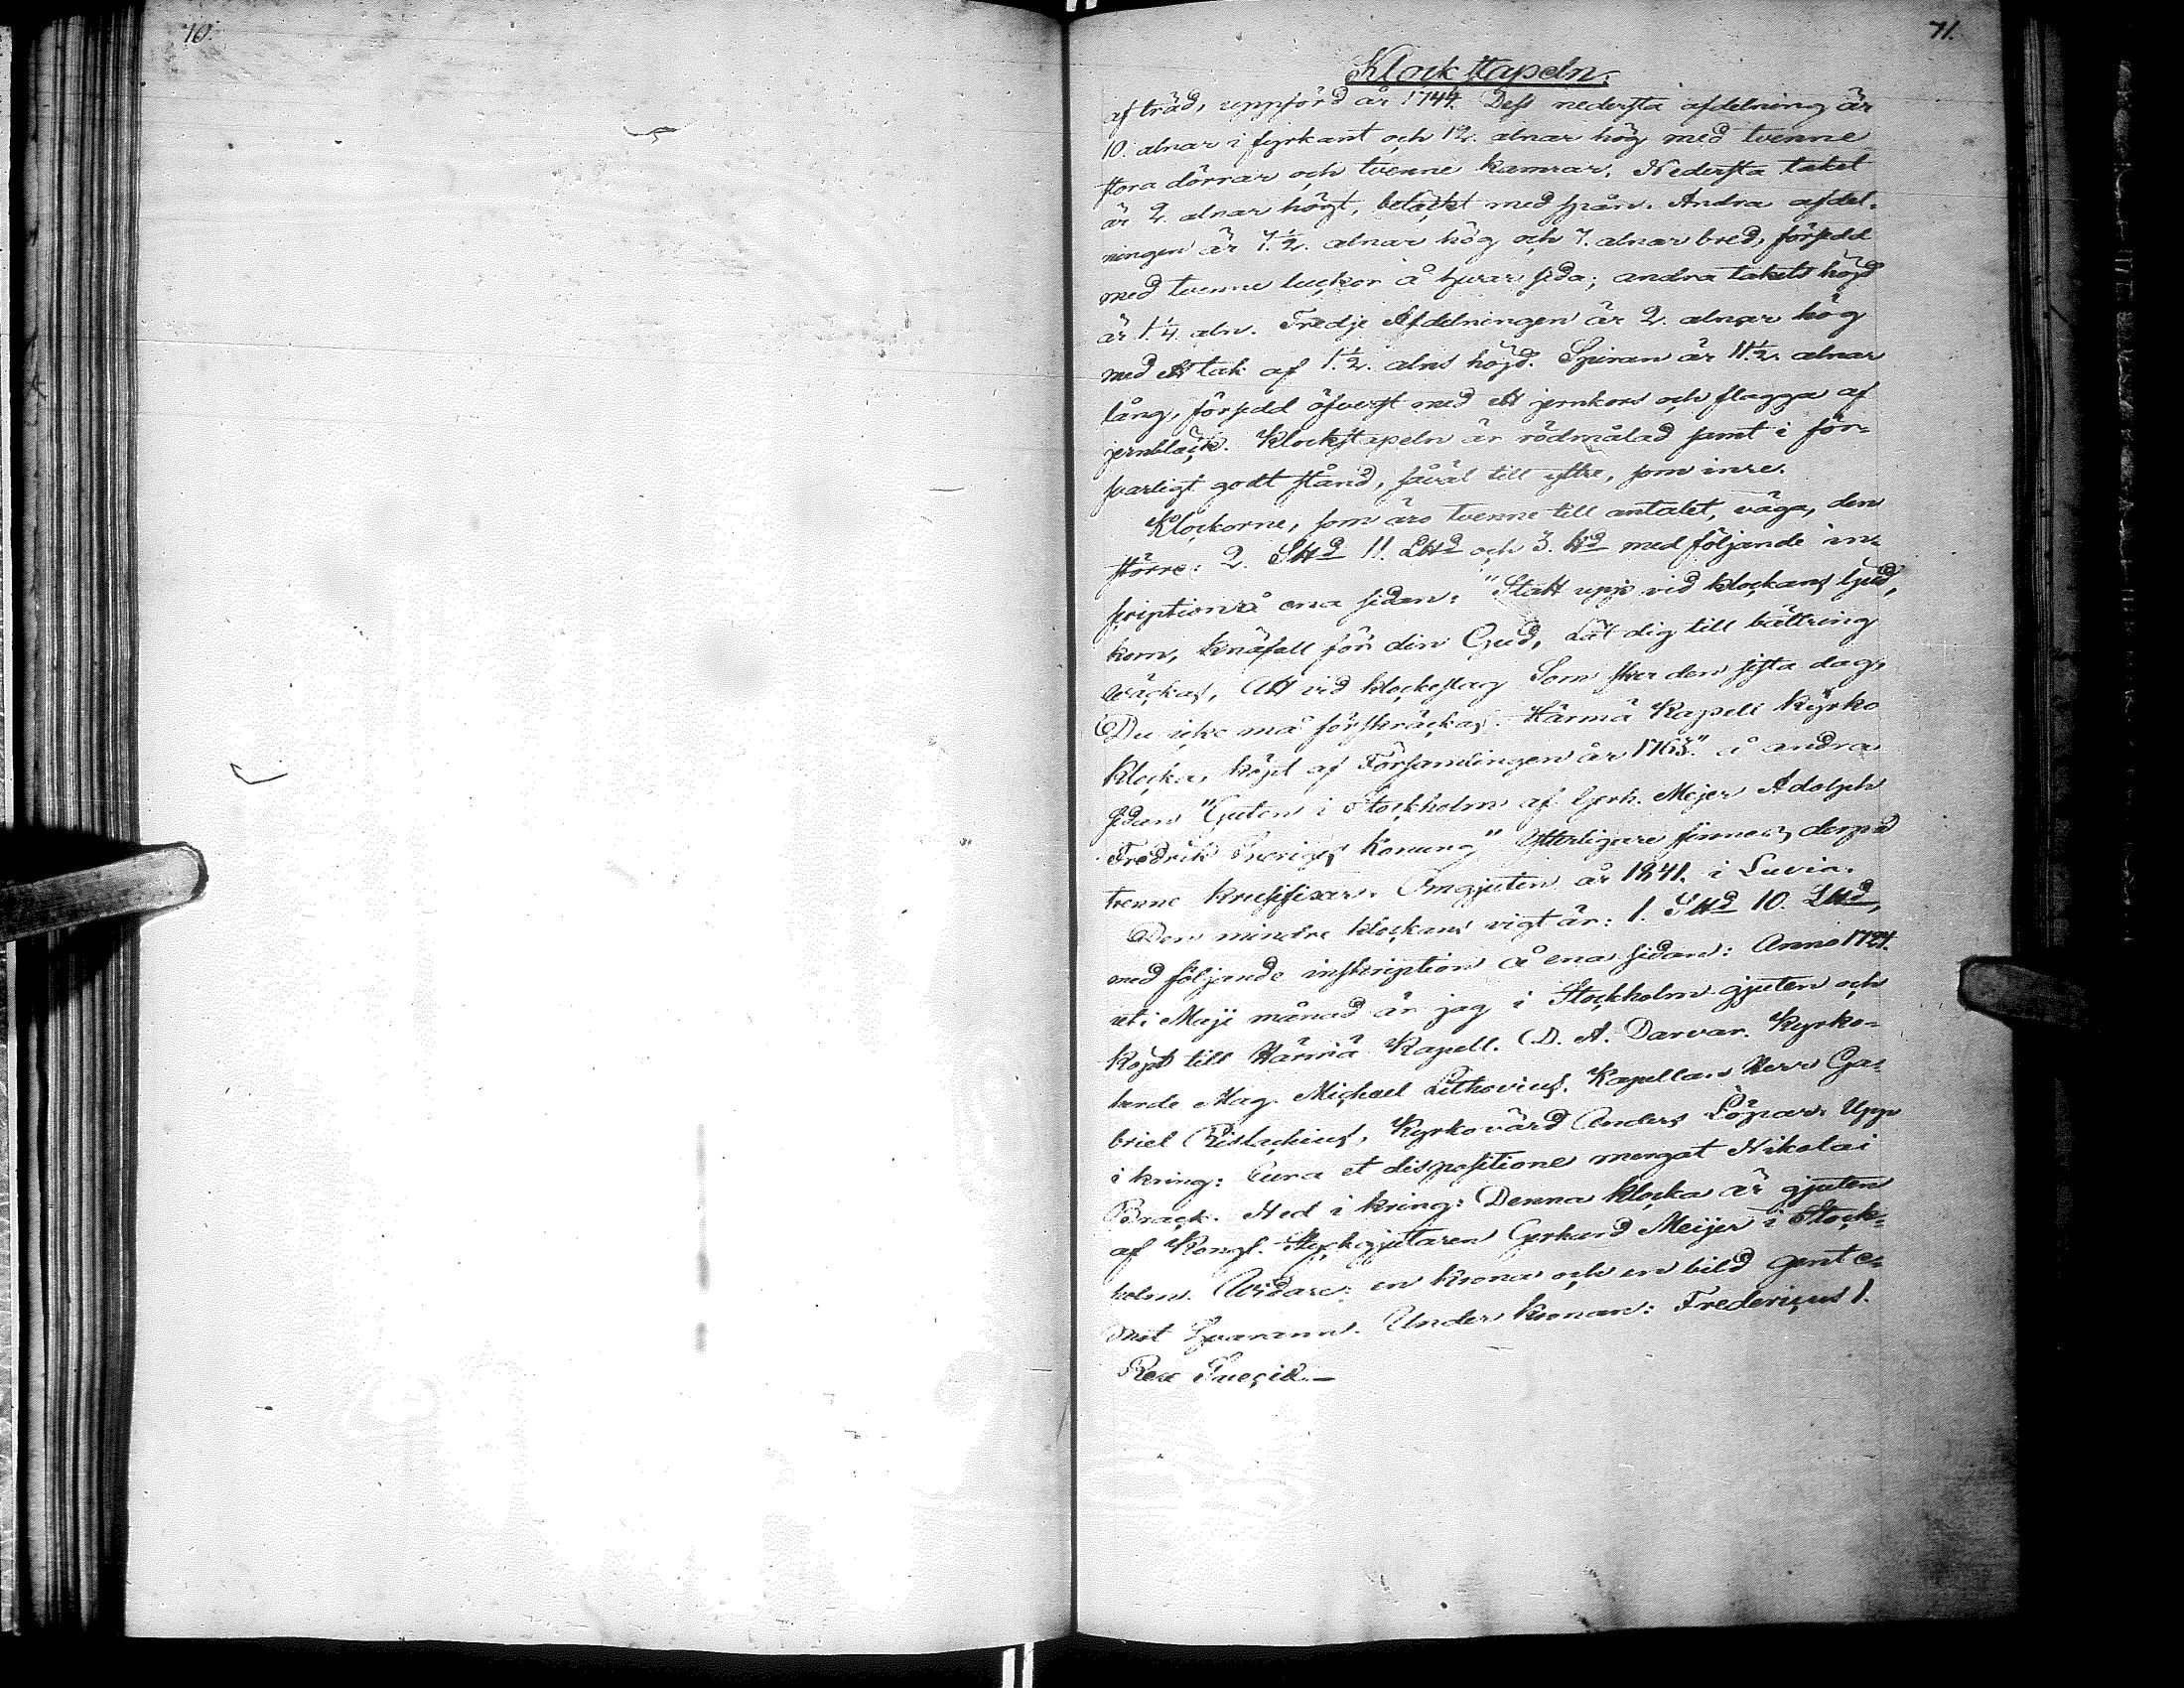 70.
71.
Klockstapeln.
af träd, uppförd år 1744. Dess nedersta afdelning är
10. alnar i fyrkant och 12. alnar hög med tvenne
stora dörrar och tvenne kamrar. Nedersta taket
är 2 alnar högt, betäckt med spån. Andra afdel-
ningen är 7.½. alnar hög och 7. alnar bred, försedd
med tvenne luckor å hvar sida; andra takets höjd
är 1.¼. aln. Tredje Afdelningen är 2. alnar hög
med ett tak af 1.½. alns höjd. Spiran är 11.½. alnar
lång, försedd öfverst med ett jernkors och flagga af
jernbläck. Klockstapeln är rödmålad samt i för-
svarligt godt stånd, såväl till yttre, som inre.
Klockorne, som äro tvenne till antalet, väga, den
större: 2. S℔d 11. L℔d och 3. ℔d med följande in-
scription å ena sidan: "Statt upp vid klockans ljud,
kom, knäfall för din Gud, Lät dig till bättring
väckas, Att vid klockeslag Som sker den sista dag,
Du icke må förskräckas. Härmä Kapell Kyrko
Klocka, köpt af Församlingen år 1763." å andra
sidan "Guten i Stockholm af Gerh. Mejer Adolph
Fredrik Sveriges Konung" Ytterligare finnes derpå
trenne krusifixer. Omgjuten år 1841. i Luvia.
Den mindre klockans vigt är: 1. S℔d 10. L℔d,
med följande inskription å ena sidan: Anno 1724.
uti Maji månad är jag i Stockholm gjuten och
köpt till Härmä Kapell. D. A. Darvar. Kyrko-
herde Mag. Michael Lithovius. Kapellan Herr Ga-
briel Peislachius, Kyrkovärd Anders Löpar. Upp
i kring: Cura et dispositione mergat Nikolai
Brack. Ned i kring: Denna klocka är gjuten
af Kongl. Styckgjutaren Gerhard Meijer i Stock-
holm. Widare: en krona och en bild gent e-
mot Under kronan: Fredericus I.
Rex Sueciæ.—